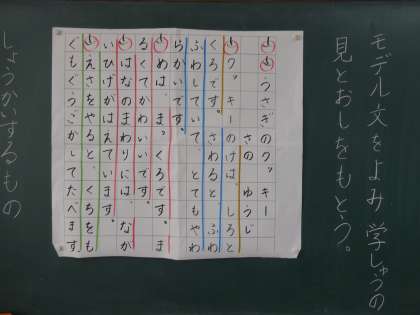 モデル文をよみ 学しゅうの
見とおしをもとう。
うさぎのクッキー
さの ゆうじ
クッキーのけは、しろと
くろです。さわると、ふわ
ふわしていて、とてもやわ
らかいです。
めは、まっくろです。ま
るくてかわいいです。
はなのまわりには、なが
いひげがはえています。
えさをやると、くちをも
ぐもぐうごかしてたべます。
しょうかいするもの